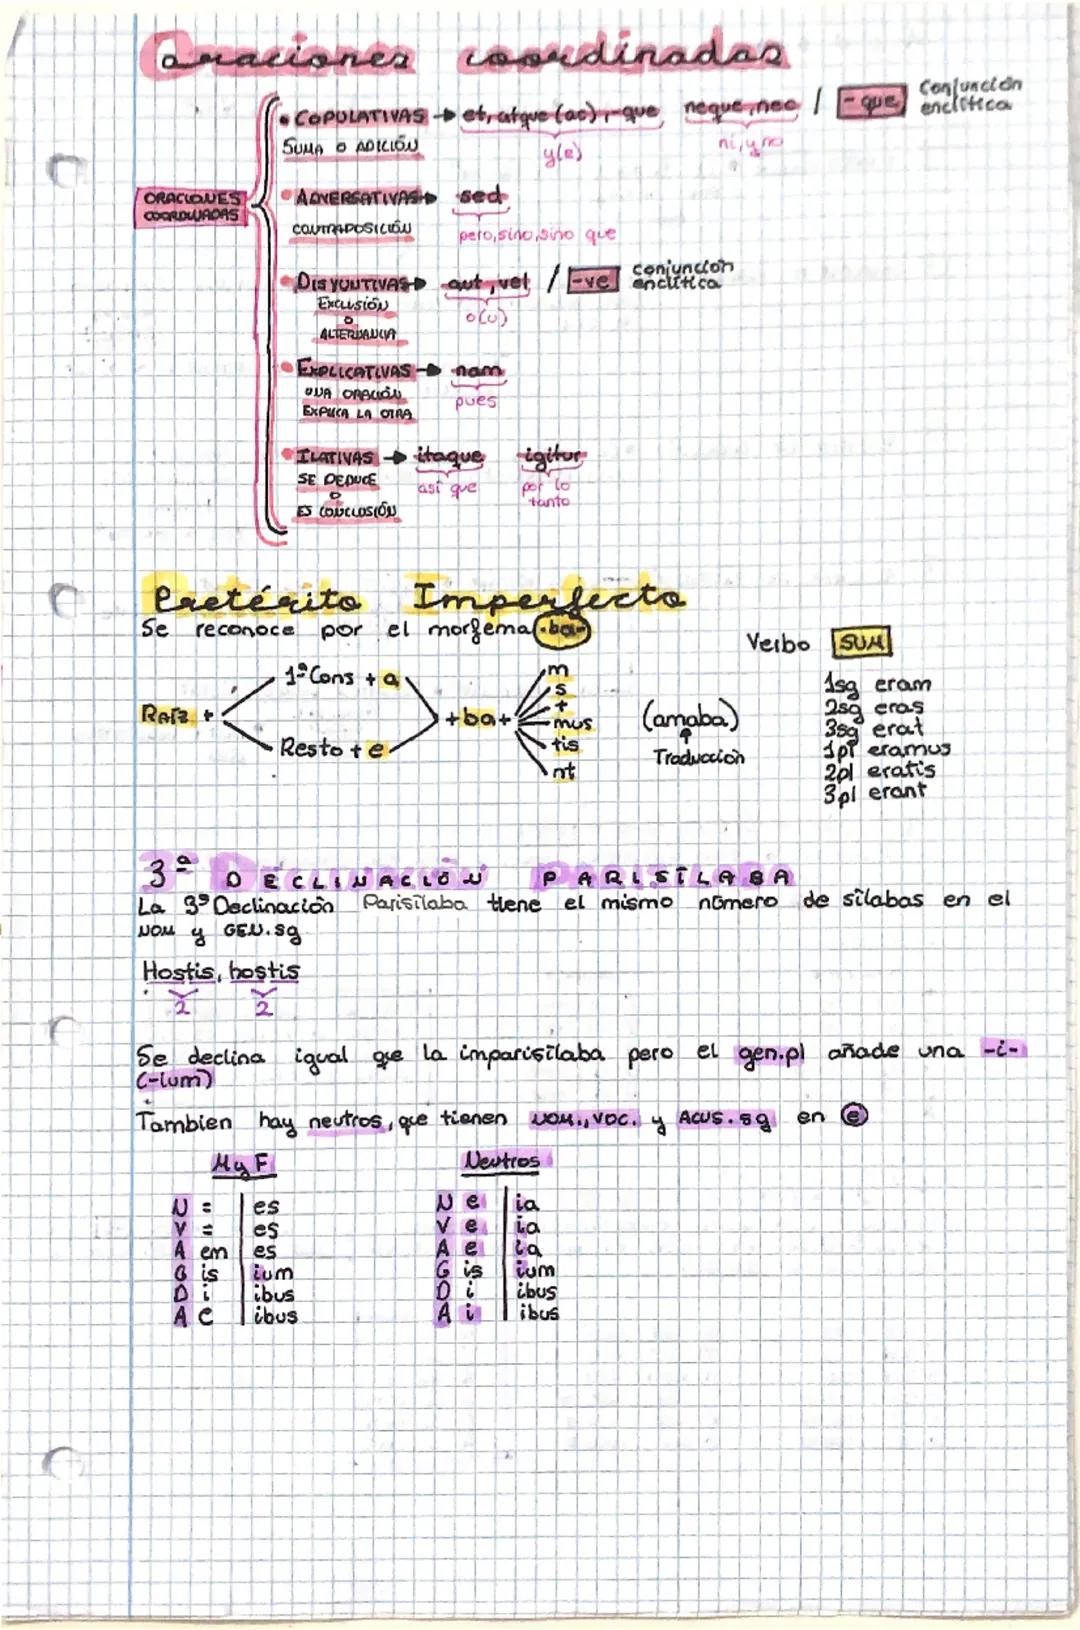 Oraciones coordinadas
ORACIONES COORDINADAS
• COPULATIVAS → et, atque (ac), -que neque, nec / -que Conjunción enclítica
SUMA O ADICIÓN y(e) ni, y no
• ADVERSATIVAS → sed
CONTRAPOSICIÓN pero, sino, sino que
• DISYUNTIVAS → aut, vel / -ve conjunción enclítica
EXCLUSIÓN o(u)
O
ALTERNANCIA
• EXPLICATIVAS → nam
UNA ORACIÓN pues
EXPLICA LA OTRA
• ILATIVAS → itaque igitur
SE DEDUCE así que por lo tanto
O
ES CONCLUSIÓN
Pretérito Imperfecto
Se reconoce por el morfema -ba-
Verbo SUM
Raíz +
1ª Cons + a
Resto + e
+ba+
m
s
t
mus
tis
nt
(amaba)
Traducción
1sg eram
2sg eras
3sg erat
1pl eramus
2pl eratis
3pl erant
3ª DECLINACIÓN PARISÍLABA
La 3ª Declinación Parisílaba tiene el mismo número de sílabas en el
NOM y GEN.sg
Hostis, hostis
2 2
Se declina igual que la imparisílaba pero el gen.pl añade una -i-
(-ium)
Tambien hay neutros, que tienen NOM., VOC. y ACUS.sg en e
M y F
N = es
V = es
A em es
G is ium
D i ibus
A e ibus
Neutros
N e ia
V e ia
A e ia
G is ium
D i ibus
A i ibus